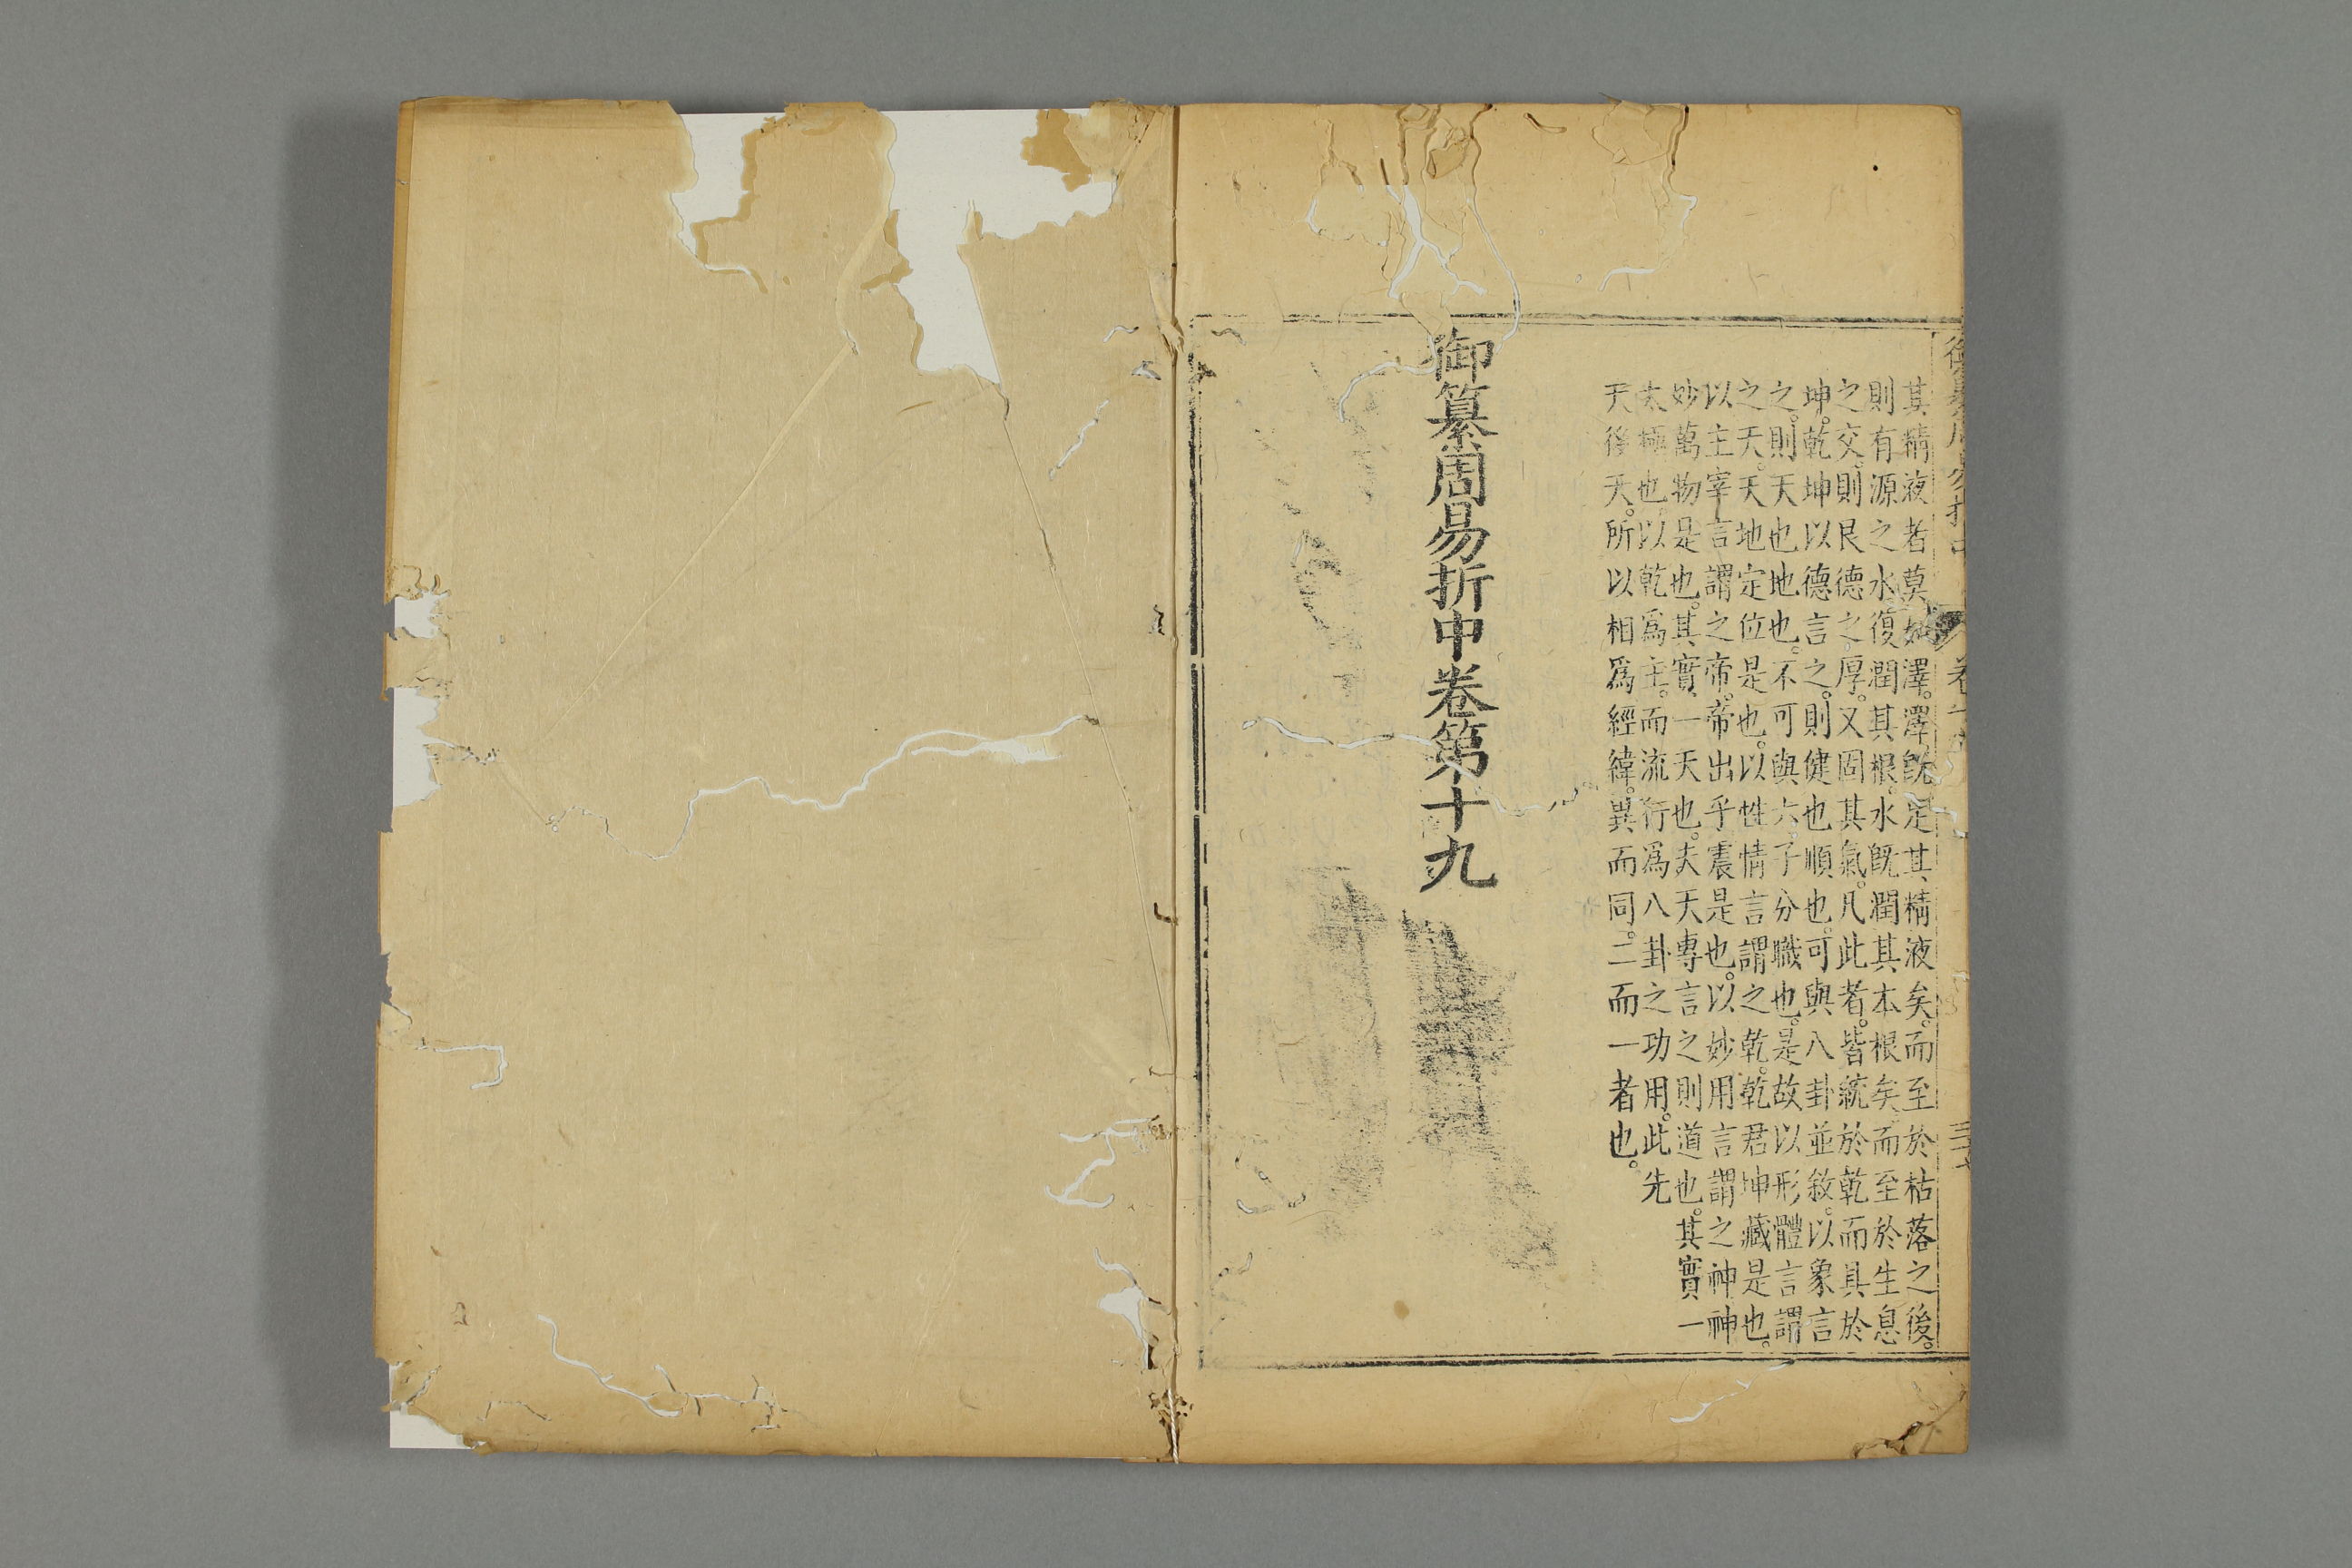 其精液者莫如澤。澤旣足其精液矣。而至於枯落之後。
則有源之水。復潤其根。水旣潤其本根矣。而至於生息
之交。則艮德之厚。又固其氣。凡此者。皆統於乾而具於
坤。乾坤以德言之。則健也順也。可與八卦並敘。以象言
之。則天也地也。不可與六子分職也。是故以形體言謂
之天。天地定位是也。以性情言謂之乾。乾君坤藏是也。
以主宰言謂之帝。帝出乎震是也。以妙用言謂之神神
妙萬物是也。其實一天也。夫天專言之則道也。其實一
太極也。以乾爲主。而流行爲八卦之功用。此先
天後天。所以相爲經緯。異而同。二而一者也。
御纂周易折中卷第十九